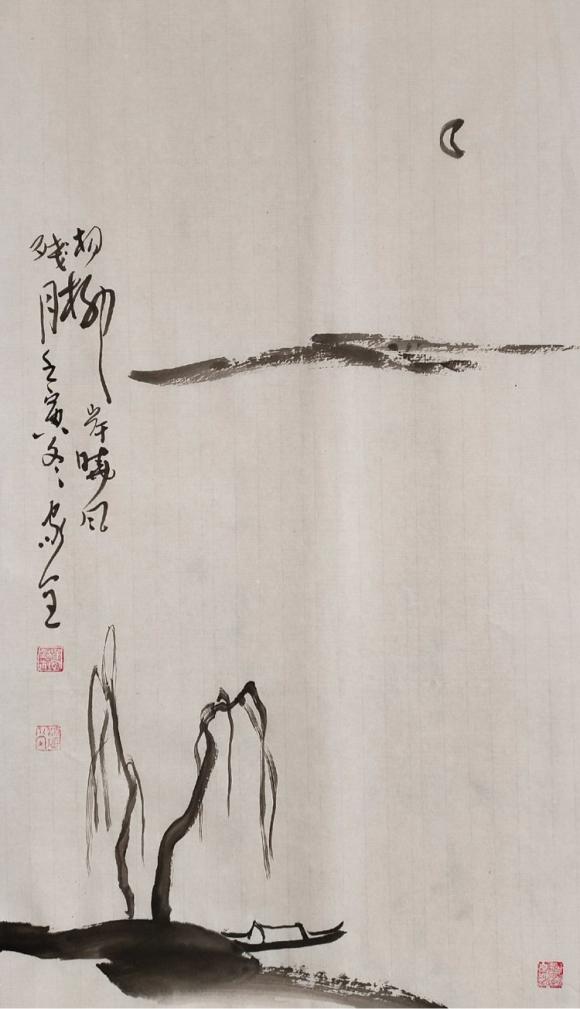 杨柳岸晓风
残月壬寅冬家全